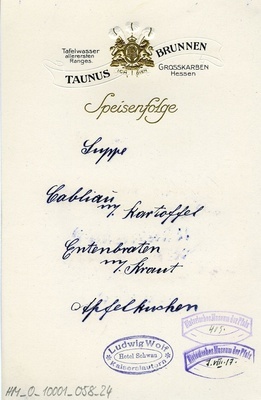 Tafelwasser
allerersten
Ranges.
TAUNUS BRUNNEN
GROSSKARBEN
Hessen
Speisenfolge
Suppe
Cabliau
m/. Kartoffel
Entenbraten
m/. Kraut
Apfelkuchen
Ludwig Wolf
Hotel Schwan
Kaiserslautern
Historisches Museum der Pfalz
Historisches Museum der Pfalz
HM_0_10001_058_24